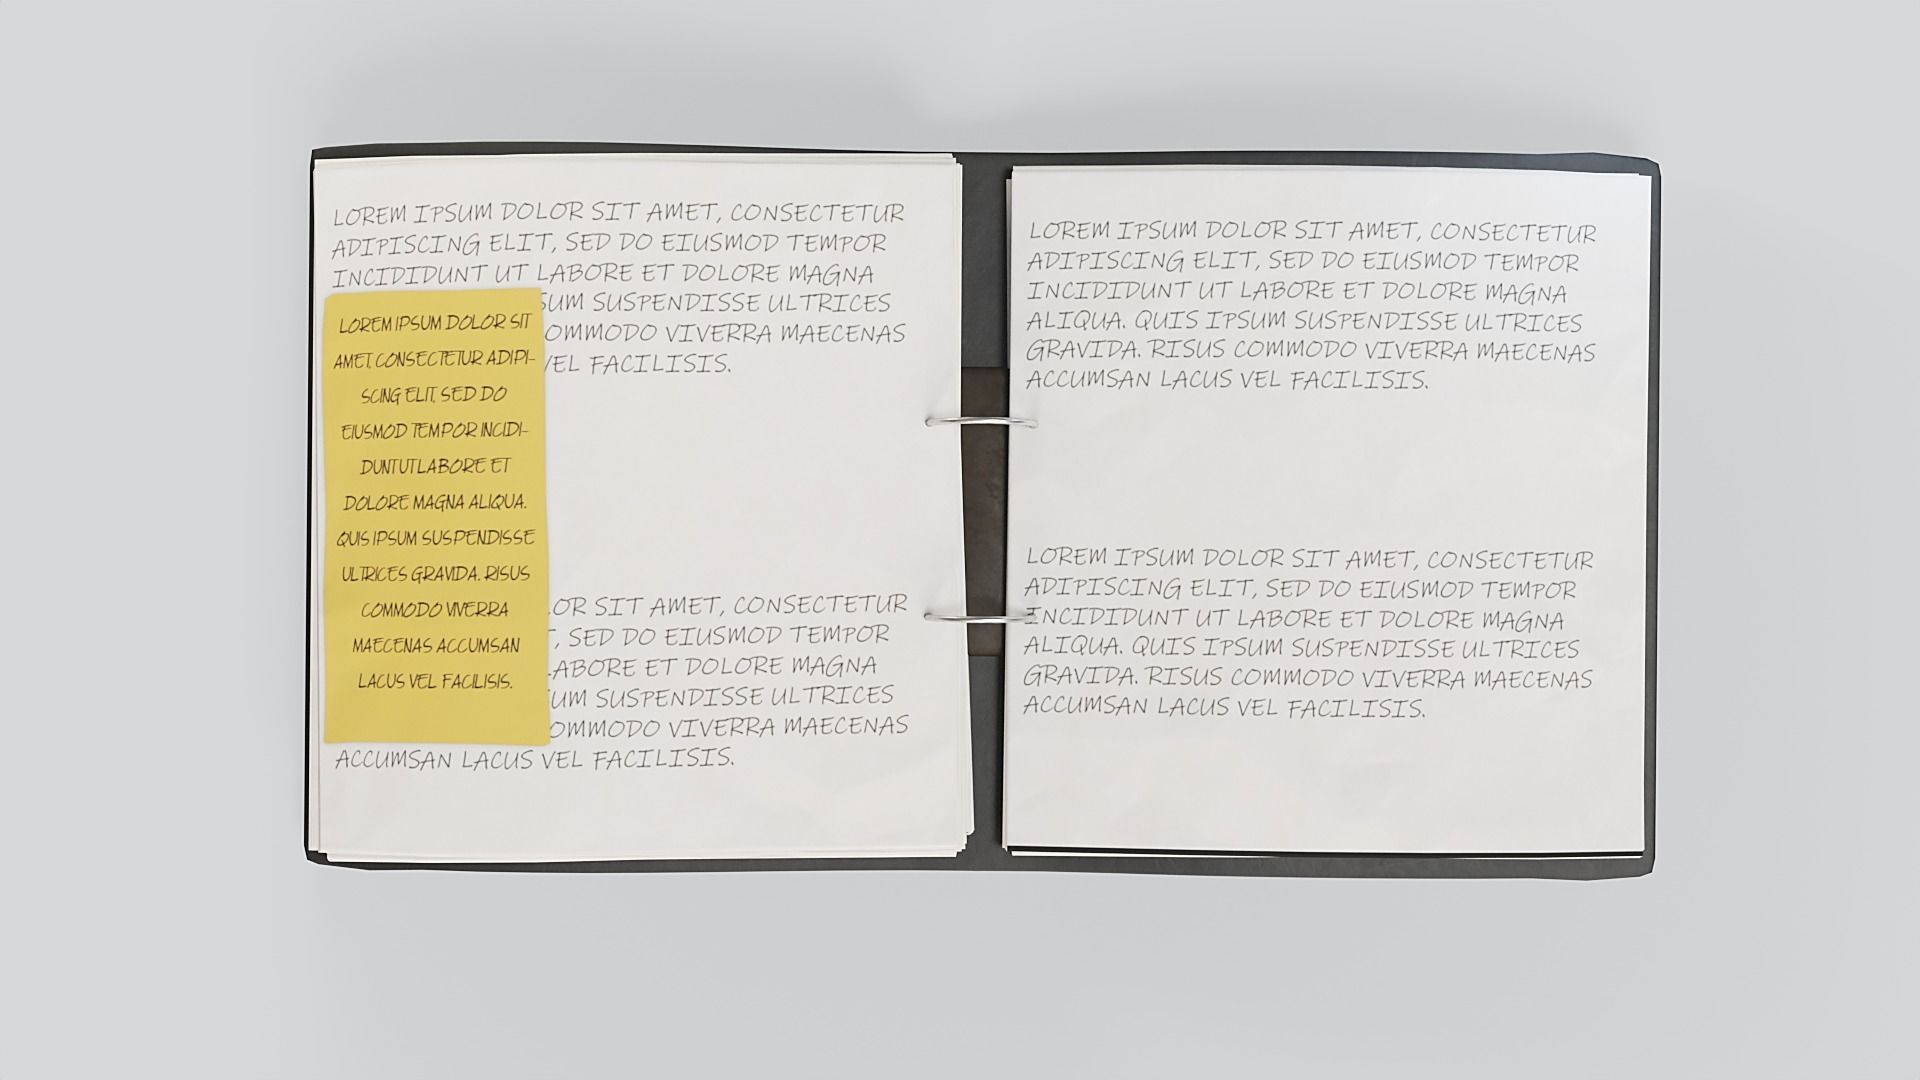 LOREM IPSUM DOLOR SIT AMET, CONSECTETUR
ADIPISCING ELIT, SED DO EIUSMOD TEMPOR
INCIDIDUNT UT LABORE ET DOLORE MAGNA
SUSPENDISSE ULTRICES
VIVERRA MAECENAS
VEL FACILISIS.
LOREM IPSUM DOLOR SIT
AMET, CONSECTETUR ADIPI-
SCING ELIT, SED DO
EIUSMOD TEMPOR INCIDI-
DUNT UT LABORE ET
DOLORE MAGNA ALIQUA.
QUIS IPSUM SUSPENDISSE
ULTRICES GRAVIDA. RISUS
COMMODO VIVERRA
MAECENAS ACCUMSAN
LACUS VEL FACILISIS.
SIT AMET, CONSECTETUR
, SED DO EIUSMOD TEMPOR
ET DOLORE MAGNA
SUSPENDISSE ULTRICES
VIVERRA MAECENAS
ACCUMSAN LACUS VEL FACILISIS.
LOREM IPSUM DOLOR SIT AMET, CONSECTETUR
ADIPISCING ELIT, SED DO EIUSMOD TEMPOR
INCIDIDUNT UT LABORE ET DOLORE MAGNA
ALIQUA. QUIS IPSUM SUSPENDISSE ULTRICES
GRAVIDA. RISUS COMMODO VIVERRA MAECENAS
ACCUMSAN LACUS VEL FACILISIS.
LOREM IPSUM DOLOR SIT AMET, CONSECTETUR
ADIPISCING ELIT, SED DO EIUSMOD TEMPOR
INCIDIDUNT UT LABORE ET DOLORE MAGNA
ALIQUA. QUIS IPSUM SUSPENDISSE ULTRICES
GRAVIDA. RISUS COMMODO VIVERRA MAECENAS
ACCUMSAN LACUS VEL FACILISIS.